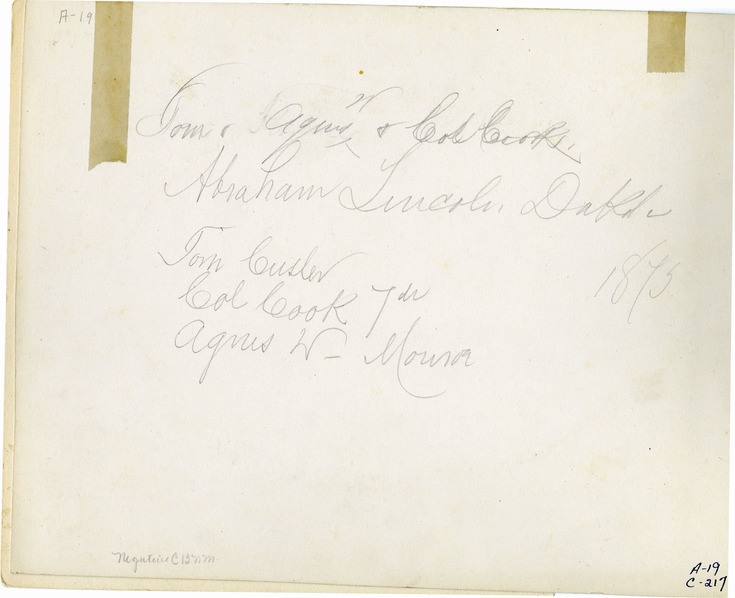 A-19
Tom & Agnes W & Col Cook.
Abraham Lincoln. Dakota
Tom Custer
1875.
Col Cook 7th
Agnes W - Monroe
Negative C
A-19
C-217